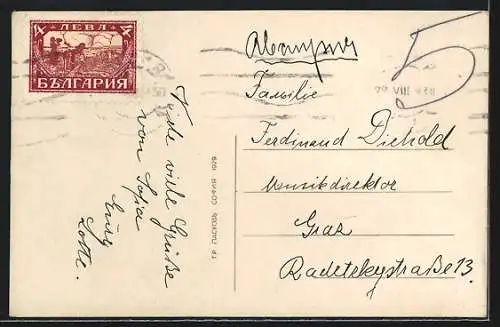 4 ЛЕВА 4
БЪЛГАРИЯ
Австрия
Familie
Ferdinand Diebold
Musikdirektor
Graz
Radetzkystraße 13.
5
Viele viele Grüße
von Sofia
Eure
Lotte.
ГР. ПАСКОВЪ СОФИЯ 1929